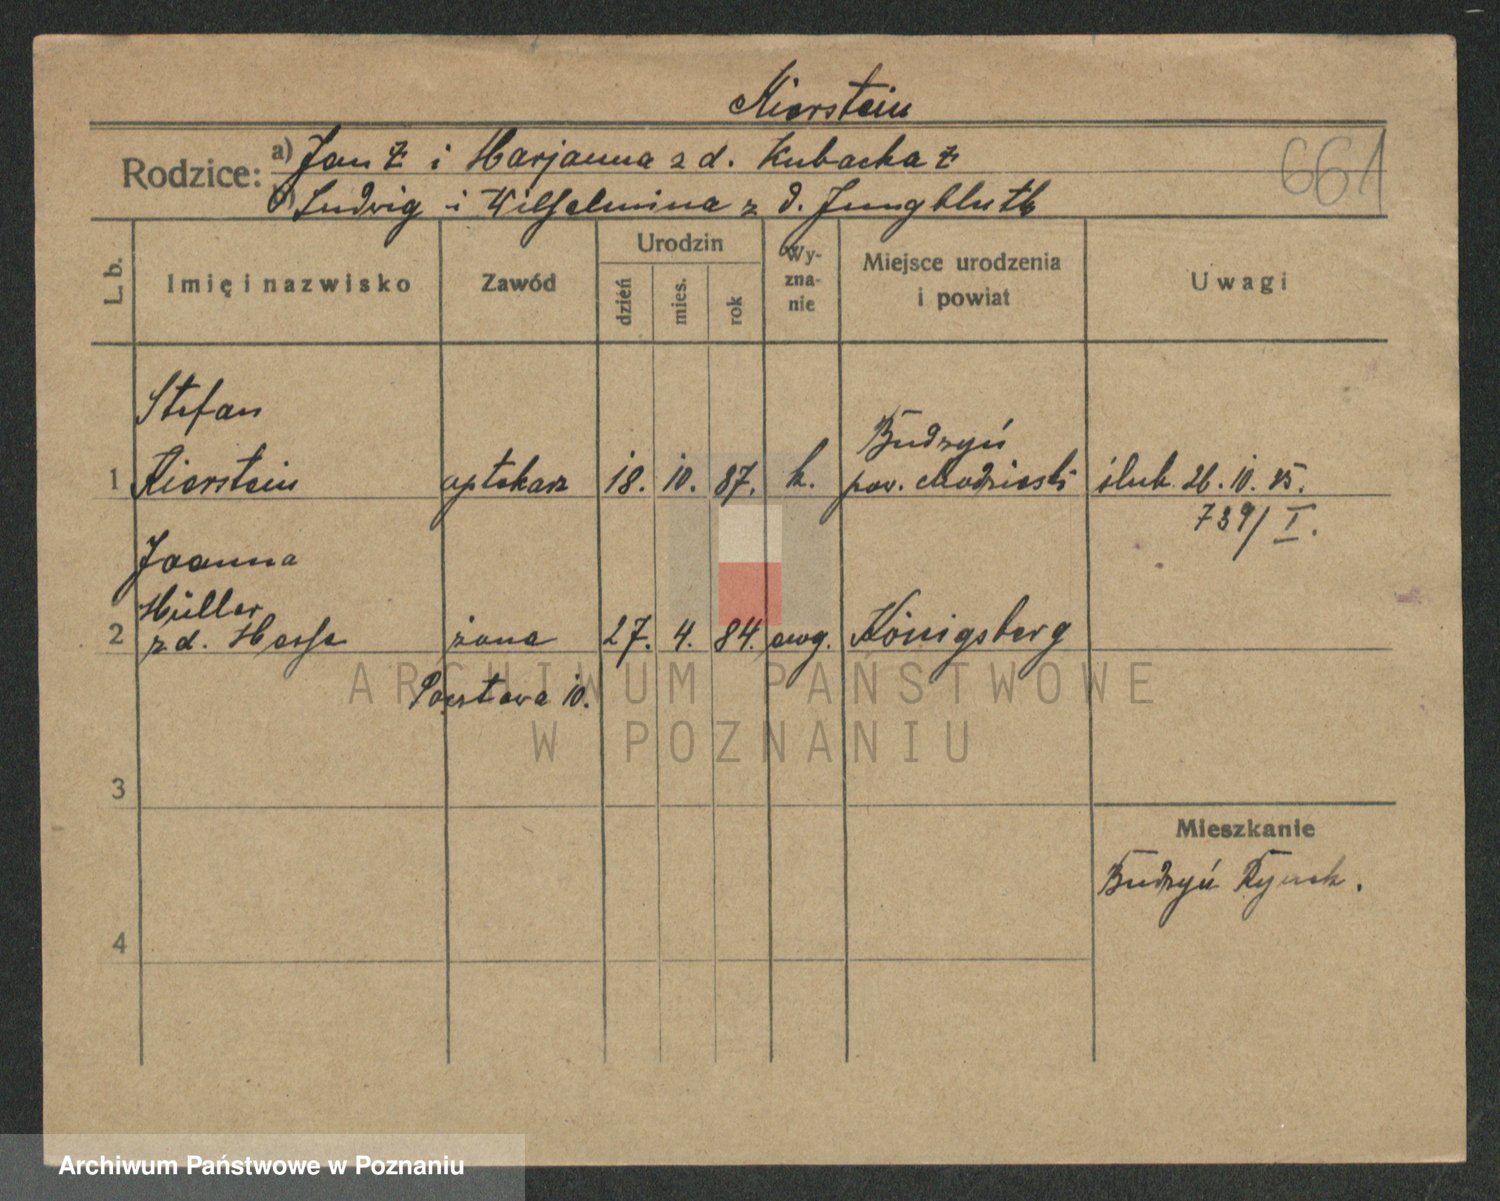 Kierstein
661
Rodzice: a) Jan ż i Marjanna z d. Kubacka ż
b) Ludwig i Wilhelmina z d. Jungbluth
L. b. Imię i nazwisko Zawód Urodzin dzień mies. rok Wyznanie Miejsce urodzenia i powiat Uwagi
Stefan
1 Kierstein aptekarz 18. 10. 87. k. Budzyń pow. chodzieski ślub. 26. 10. 15.
739/I.
Joanna
Müller
2 z d. Hesse żona 27. 4. 84. ewg. Königsberg
Pocztowa 10.
3
Mieszkanie
Budzyń Rynek.
4
ARCHIWUM PAŃSTWOWE
W POZNANIU
Archiwum Państwowe w Poznaniu